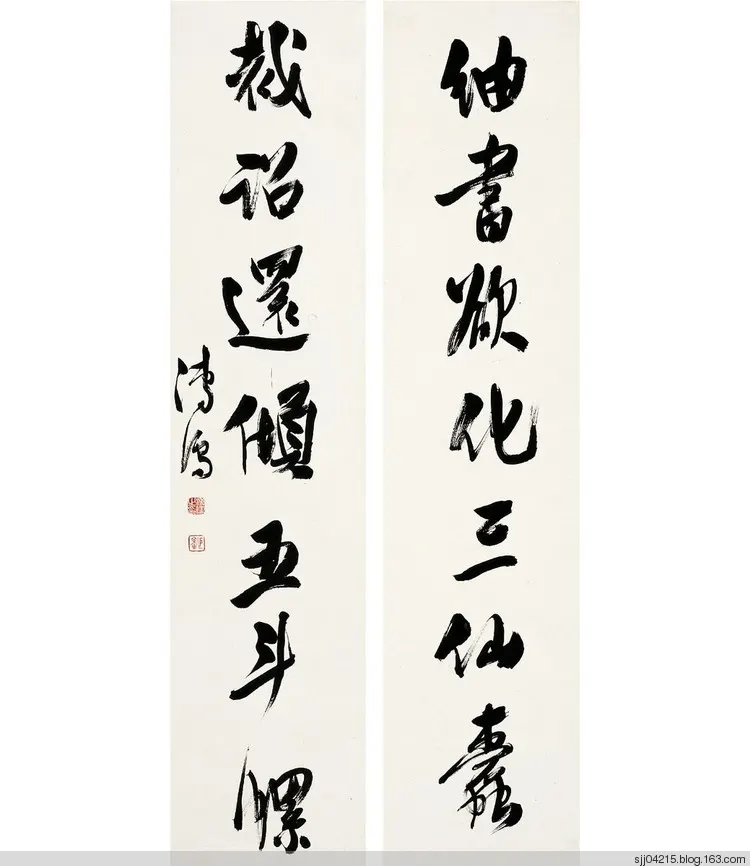 紬書欲化三仙蠹
裁詔還傾五斗螺
溥
sjj04215.blog.163.com